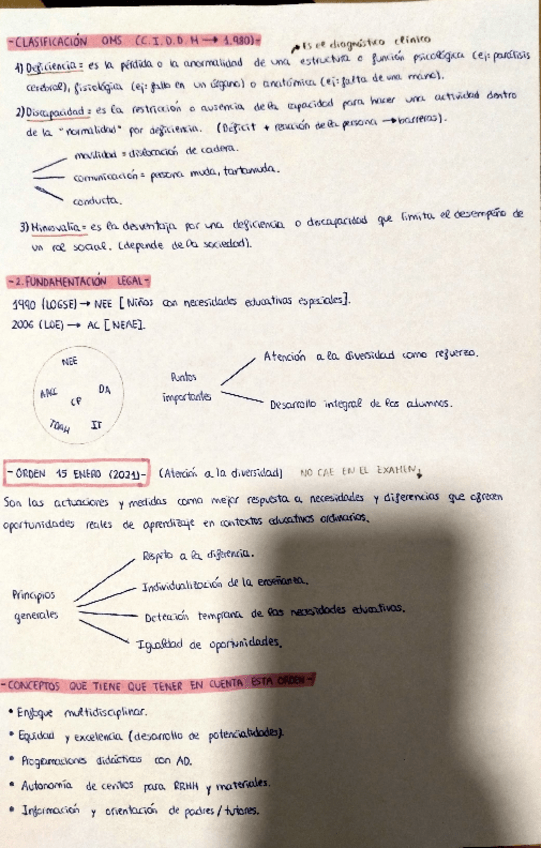 -CLASIFICACIÓN OMS (C.I.D.D.M → 1.980)-
→ Es el diagnóstico clínico
1) Deficiencia = es la pérdida o la anormalidad de una estructura o función psicológica (ej: parálisis
cerebral), fisiológica (ej: fallo en un órgano) o anatómica (ej: falta de una mano).
2) Discapacidad = es la restricción o ausencia de la capacidad para hacer una actividad dentro
de la "normalidad" por deficiencia. (Déficit + reacción de la persona → barreras).
movilidad = dislocación de cadera.
comunicación = persona muda, tartamuda.
conducta.
3) Minusvalía = es la desventaja por una deficiencia o discapacidad que limita el desempeño de
un rol social. (depende de la sociedad).
-2. FUNDAMENTACIÓN LEGAL-
1990 (LOGSE) → NEE [Niños con necesidades educativas especiales].
2006 (LOE) → AC [NEAE].
NEE
DA
CP
TDAH
Puntos
importantes
Atención a la diversidad como refuerzo.
Desarrollo integral de los alumnos.
-ORDEN 15 ENERO (2021)- (Atención a la diversidad) NO CAE EN EL EXAMEN
Son las actuaciones y medidas como mejor respuesta a necesidades y diferencias que ofrecen
oportunidades reales de aprendizaje en contextos educativos ordinarios.
Principios
generales
Respeto a la diferencia.
Individualización de la enseñanza.
Detección temprana de las necesidades educativas.
Igualdad de oportunidades.
-CONCEPTOS QUE TIENE QUE TENER EN CUENTA ESTA ORDEN-
• Enfoque multidisciplinar.
• Equidad y excelencia (desarrollo de potencialidades).
• Programaciones didácticas con AD.
• Autonomía de centros para RRHH y materiales.
• Información y orientación de padres / tutores.